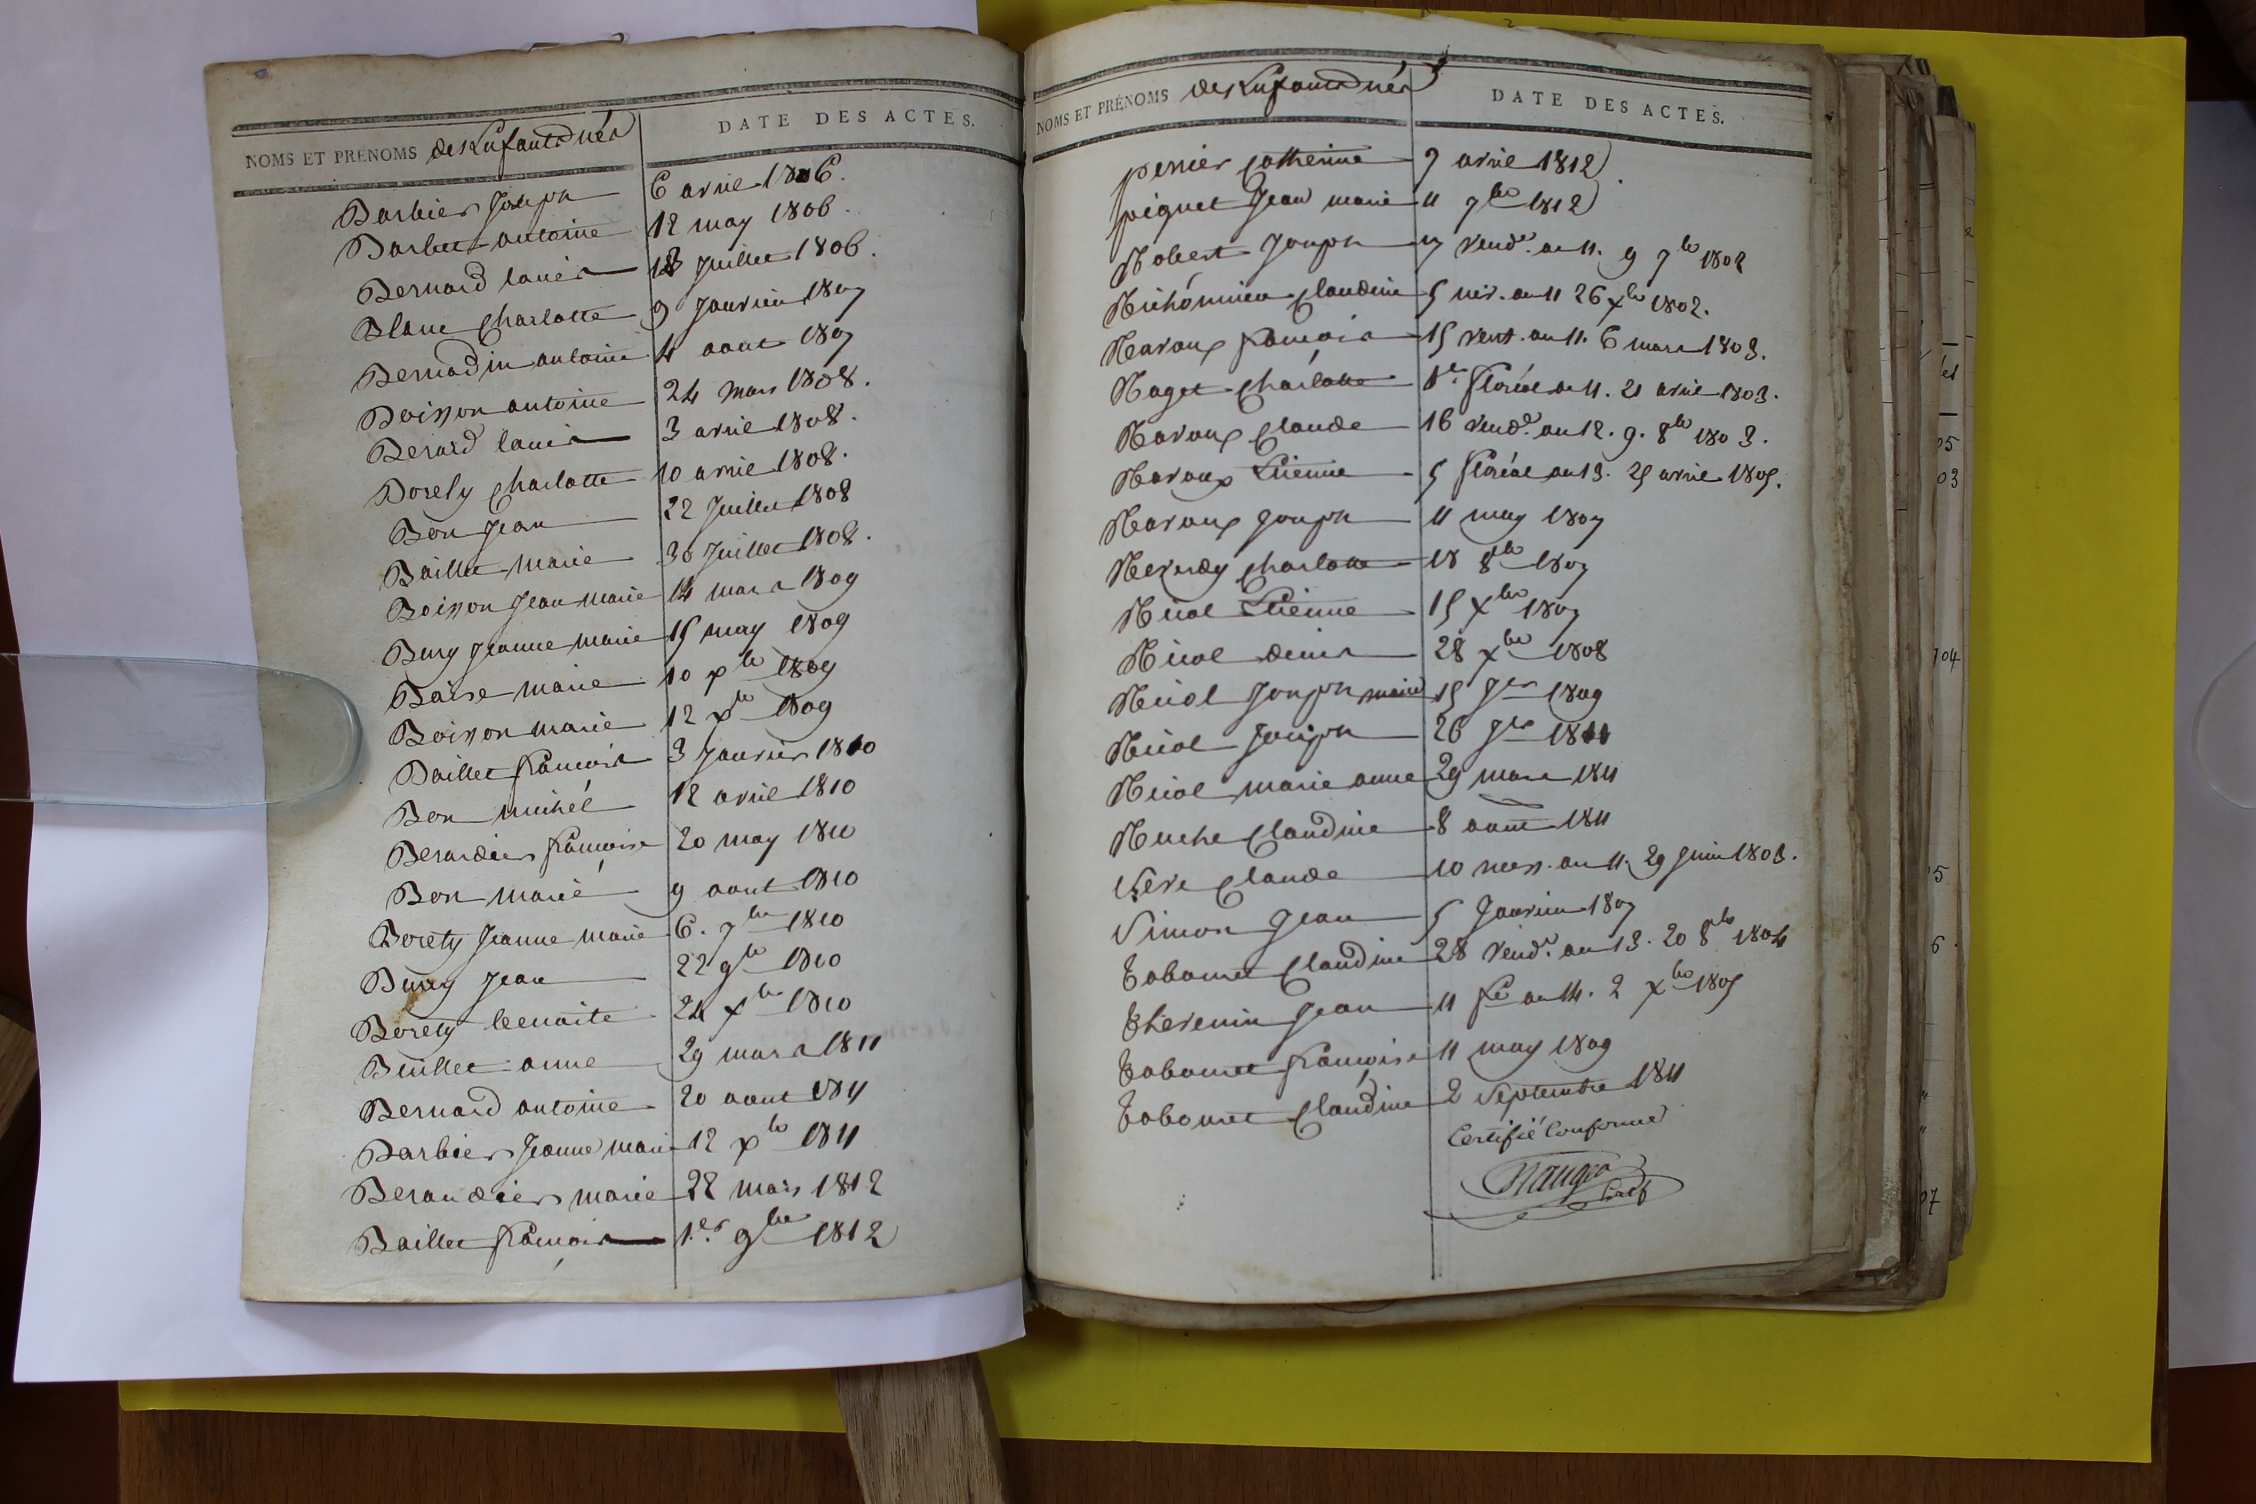 NOMS ET PRÉNOMS des Enfants nés
DATE DES ACTES.
Barbier Joseph 6 avril 1806.
Barbet antoine 12 may 1806.
Bernard louis 18 Juillet 1806.
Blanc Charlotte 9 Janvier 1807
Bernadin antoine 4 aout 1807
Boisson antoine 24 mars 1808.
Berard louis 3 avril 1808.
Borely Charlotte 10 avril 1808.
Bon Jean 22 Juillet 1808
Baillet Marie 30 Juillet 1808.
Boisson Jean Marie 14 mars 1809
Bury Jeanne Marie 15 may 1809
Baise Marie 10 xbre 1809
Boisson Marie 12 xbre 1809
Baillet françois 3 Janvier 1810
Bon michel 12 avril 1810
françoise 20 may 1810
Bon Marie 9 aout 1810
Borety Jeanne Marie 6. 7bre 1810
Bury Jean 22 9bre 1810
Borety 24 xbre 1810
Buillet anne 29 mars 1811
Bernard antoine 20 aout 1811
Barbier Jeanne Marie 12 xbre 1811
Beraudier Marie 22 mars 1812
Baillet françois 1er 9bre 1812
NOMS ET PRÉNOMS des Enfants nés
DATE DES ACTES.
perrier Catherine 7 avril 1812
piquet Jean marie 11 7bre 1812
Robert Joseph vendre an 11. 9 7bre 1802
Claudine 5 niv. an 11 26 xbre 1802.
Ravoux françois 15 vent. an 11. 6 mars 1803.
Raget Charlotte 1er floréal an 11. 21 avril 1803.
Ravoux Claude 16 vendre an 12. 9. 8bre 1803.
Ravoux Etienne 5 floréal an 13. 25 avril 1805.
Ravoux Joseph 11 may 1807
Charlotte 18 8bre 1807
Ricol Etienne 15 xbre 1807
Ricol denis 28 xbre 1808
Ricol Joseph marie 15 Jer 1809
Ricol Joseph 26 Jer 1811
Ricol marie anne 29 mars 1811
Ruche Claudine 8 aout 1811
Serve Claude 10 mess. an 11. 29 Juin 1803.
Simon Jean 5 Janvier 1807
Tabouret Claudine 28 vendre an 13. 20 8bre 1804
Thevenin Jean 11 fre an 14. 2 xbre 1805
Tabouret françoise 11 may 1809
Tabouret Claudine 2 Septembre 1811
Certifié Conforme